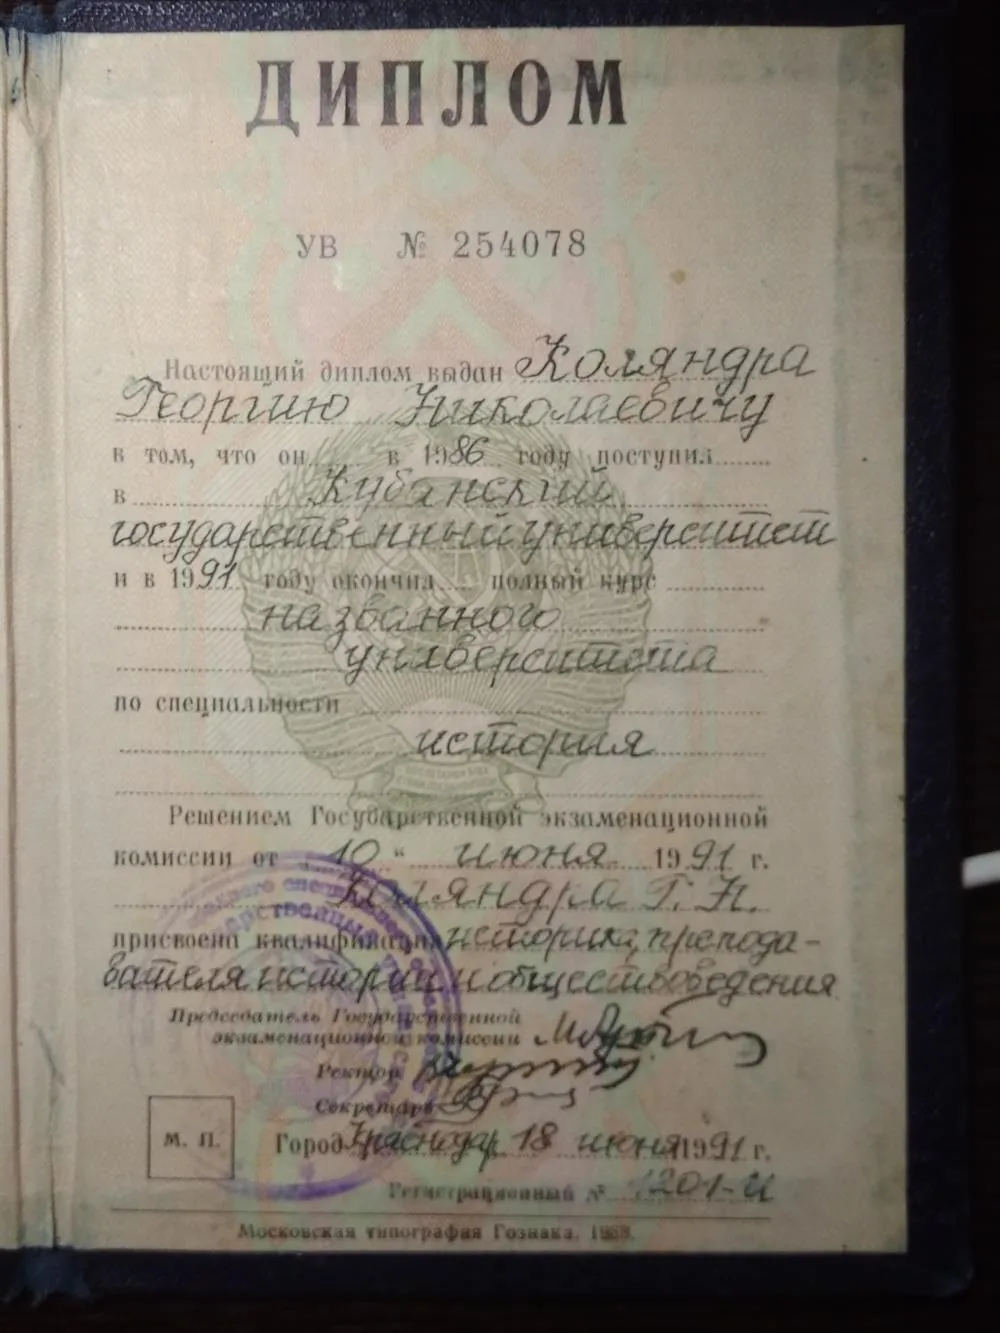 ДИПЛОМ
УВ № 254078
Настоящий диплом выдан Коляндра
Георгию Николаевичу
в том, что он в 1986 году поступил
в Кубанский
государственный университет
и в 1991 году окончил полный курс
названного
университета
по специальности
история
Решением Государственной экзаменационной
комиссии от „10“ июня 1991 г.
Коляндра Г. Н.
присвоена квалификация историка, препода-
вателя истории и обществоведения
Председатель Государственной
экзаменационной комиссии
Ректор
Секретарь
М. П.
Город Краснодар 18 июня 1991 г.
Регистрационный № 1201-И
Московская типография Гознака. 1988.